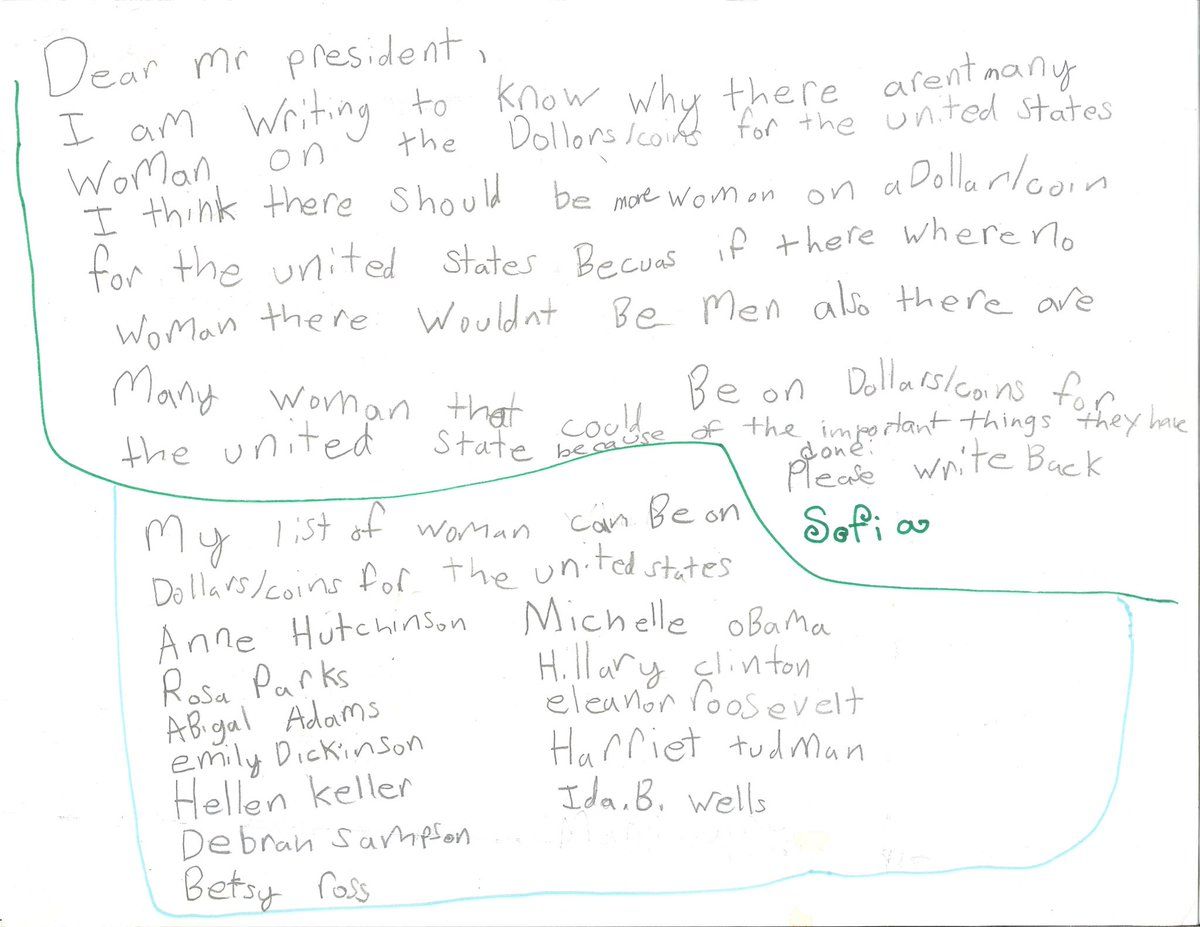 Dear mr president,
I am Writing to know why there arent many
WoMan on the Dollors/coins for the united States
I think there should be more woman on a Dollar/coin
for the united States Becuas if there where no
woman there wouldnt Be Men also there are
Many woman that could Be on Dollars/coins for
the united State because of the important things they have
done.
Please write Back
Sofia
My list of woman can Be on
Dollars/coins for the united states
Anne Hutchinson
Rosa Parks
ABigal Adams
emily Dickinson
Hellen keller
Debrah sampson
Betsy ross
Michelle oBaMa
Hillary clinton
eleanor roosevelt
Harriet tudman
Ida.B. wells